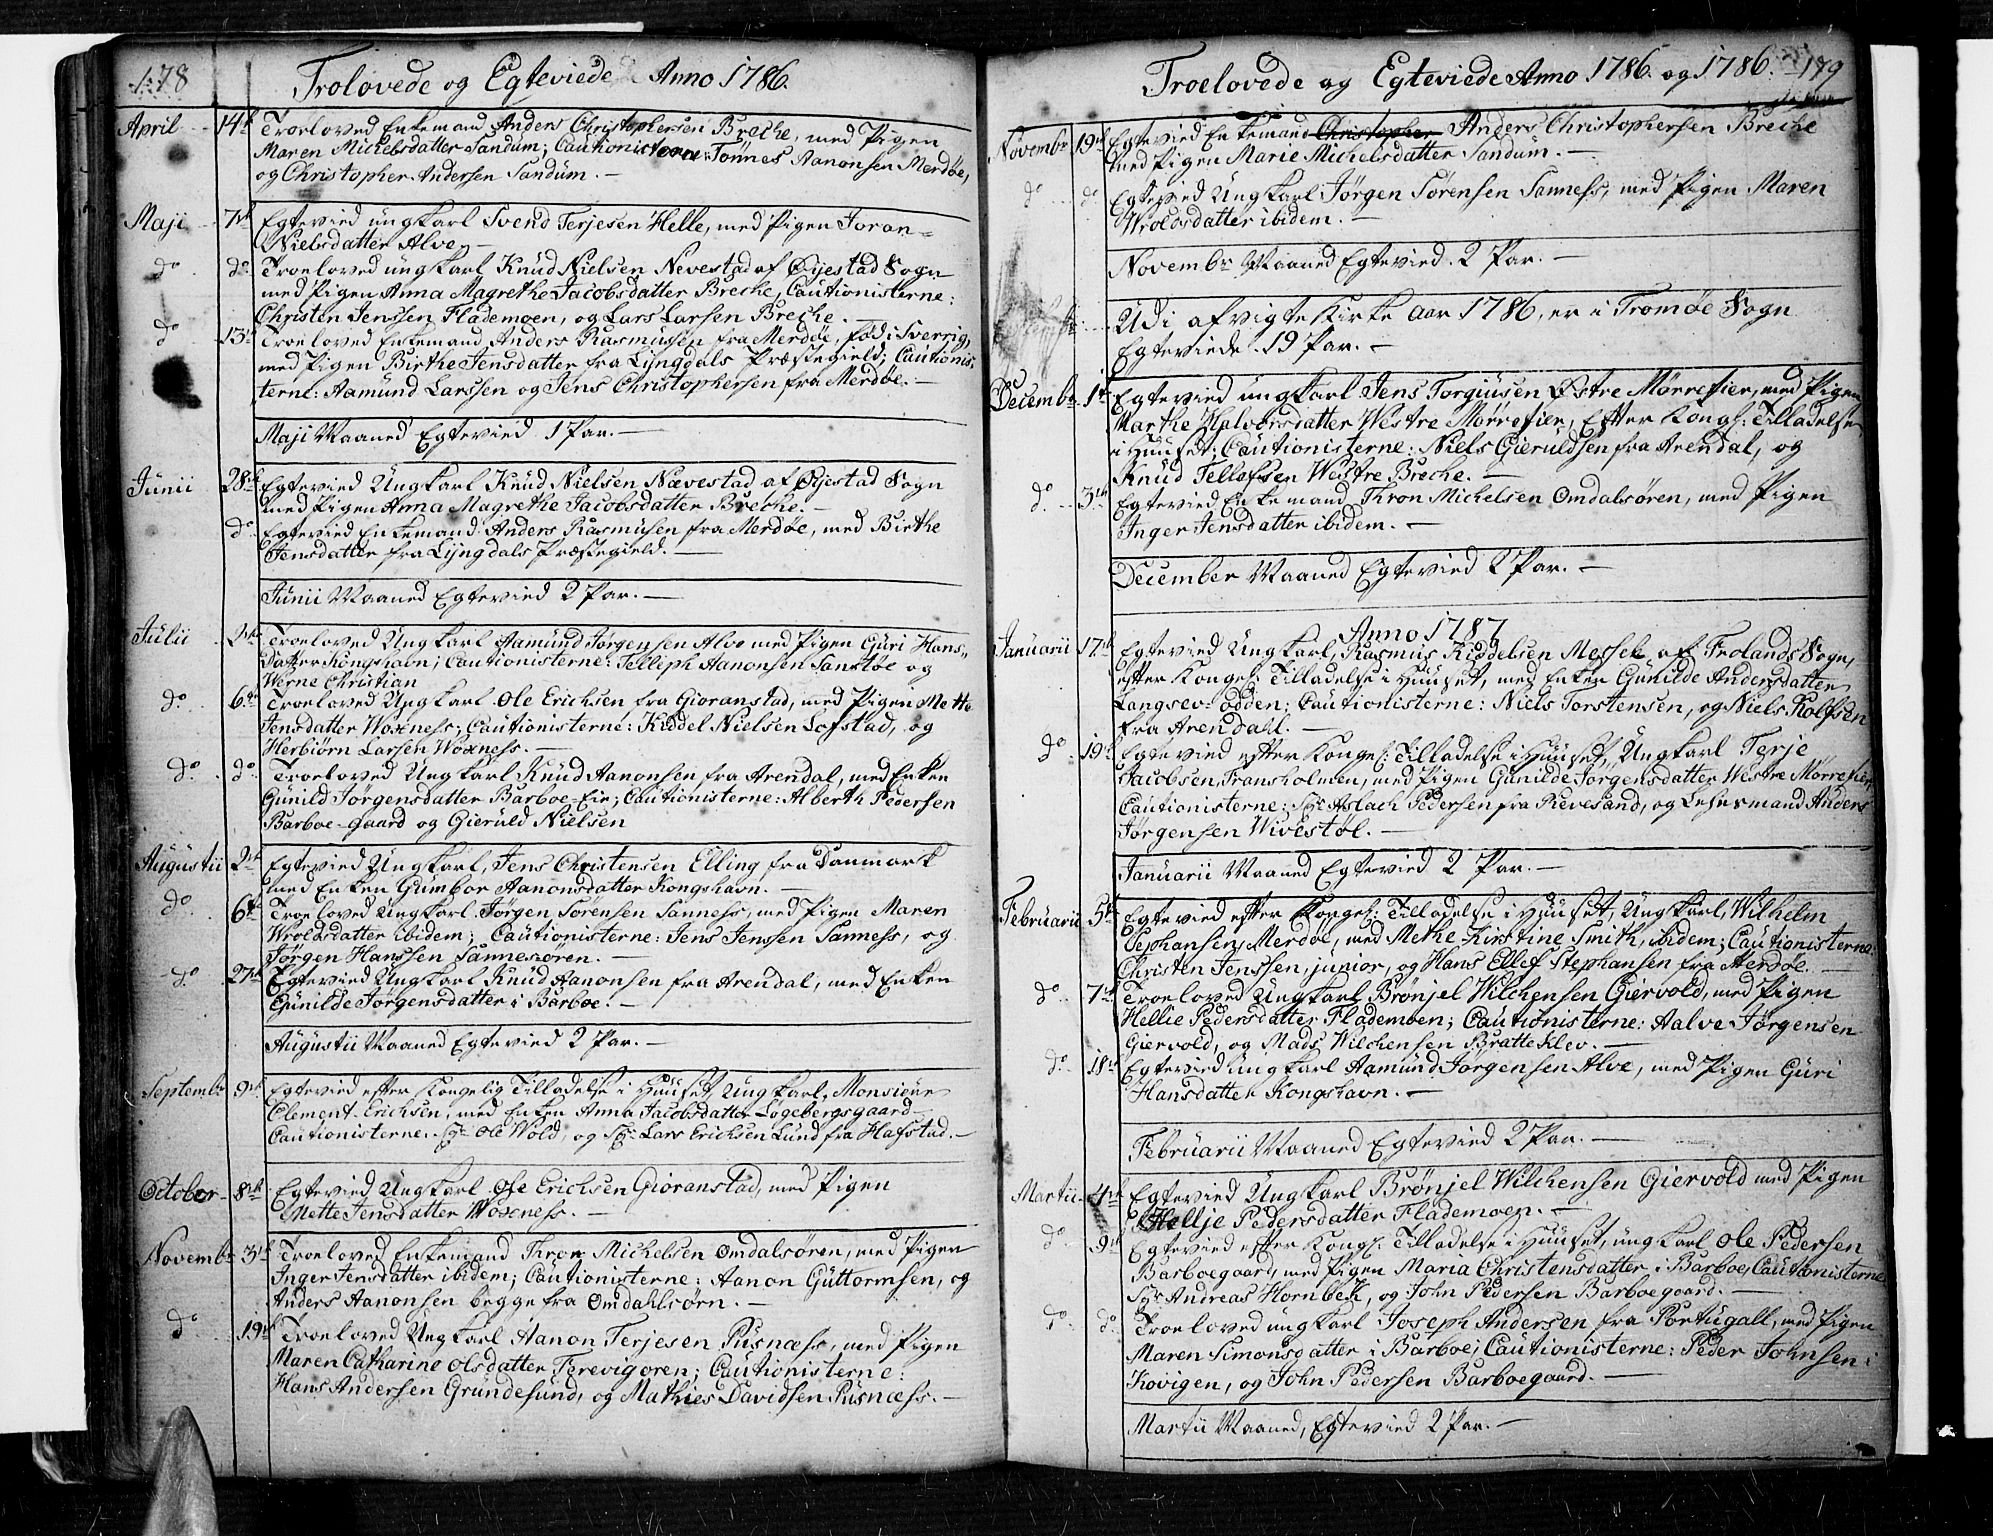 178
Trolovede og Egteviede Anno 1786.
April 14de Troeloved Enkemand Anders Christophersen Breche, med Pigen
Maren Michelsdatter Sandum; Cautionisterne: Tönnes Aanonsen Merdöe,
og Christopher Andersen Sandum. —
Maji 7de Egtevied ungkarl Svend Terjesen Helle, med Pigen Joran=
Nielsdatter Alve. —
do do Troeloved ungkarl Knud Nielsen Nevestad af Öyestad Sogn
med Pigen Anna Magrethe Jacobsdatter Breche, Cautionisterne:
Christen Jenssen Flademoen, og Lars Larsen Breche. —
do 13de Troeloved Enkemand Anders Rasmusen fra Merdöe, föd i Sverrig,
med Pigen Birthe Jensdatter fra Lyngdals Præstegield; Cautionis,
terne: Aamund Larssen og Jens Christophersen fra Merdöe. —
Maji Maaned Egtevied 1 Par. —
Junii 28de Egtevied Ungkarl Knud Nielsen Nævestad af Öyestad Sogn
med Pigen Anna Magrethe Jacobsdatter Breche. —
do Egtevied Enkemand Anders Rasmusen fra Merdöe, med Birthe
Jensdatter fra Lyngdals Præstegield. —
Junii Maaned Egtevied 2 Par. —
Julii 2den Troeloved Ungkarl Aamund Jörgensen Alve med Pigen Guri Hans,,
Datter Kongshavn; Cautionisterne: Telleph Aanonsen Sandtöe og
Werne Christian
do 6te Troeloved Ungkarl Ole Erichsen fra Gioranstad, med Pigen Mette
Jensdatter Woxness; Cautionisterne: Kiddel Nielsen Lofstad, og
Herbiörn Larsen Woxness. —
do do Troeloved Ungkarl Knud Aanonsen fra Arendal, med Enken
Gunild Jörgensdatter Barboe-Eie; Cautionisterne: Alberth Pedersen
Barboe-gaard og Gieruld Nielsen
Augustii 2den Egtevied Ungkarl, Jens Christensen Elling fra Danmark
med Enken Gumbor Aanonsdatter Kongshavn. —
do 6te Troeloved Ungkarl Jörgen Sörensen Sanness, med Pigen Maren
Wroldsdatter ibidem; Cautionisterne: Jens Jenssen Sanness, og
Jörgen Hanssen Sannesören. —
do 27de Egtevied Ungkarl Knud Aanonsen fra Arendal, med Enken
Gunilde Jörgensdatter i Barboe. —
Augustii Maaned Egtevied 2 Par. —
Septembr 9de Egtevied efter Kongelig Tilladelse i Huuset Ungkarl, Monsieur
Clement Erichsen, med Enken Anna Jacobsdatter Lögebergsgaard
Cautionisterne: Sr Ole Wold, og Sr Lars Erichsen Lund fra Hafstad. —
October 8de Egtevied Ungkarl Ole Erichsen Gioranstad, med Pigen
Mette Jensdatter Woxness. —
Novembr 3de Troeloved Enkemand Thron Michelsen Omdalsören, med Pigen
Inger Jensdatter ibidem; Cautionisterne: Aanon Guttormsen, og
Anders Aanonsen begge fra Omdahlsörn. —
do 19de Troeloved Ungkarl Aanon Terjesen Pusnæss, med Pigen
Maren Catharine Olsdatter Torevigoren; Cautionisterne:
Hans Andersen Grundesund, og Mathies Davidsen Pusnæss. —
Troelovede og Egteviede Anno 1786. og 1786. 179
Novembr 19de Egtevied Enkemand Christopher Anders Christophersen Breche
med Pigen Marie Michelsdatter Sandum. —
do do Egtevied Ungkarl Jörgen Sörensen Sanness, med Pigen Maren
Wroldsdatter ibidem. —
Novembr Maaned Egtevied. 2 Par. —
Udi afvigte Kirke Aar 1786, er i Tromöe Sogn
Egteviede. 19 Par. —
Decembr 1te Egtevied ungkarl Jens Torgiusen Östre Mörrefier, med Pigen
Marthe Halvorsdatter Westre Mörrefier, Efter Kongl: Tilladelse
i Huuset; Cautionisterne: Niels Gieruldsen fra Arendal, og
Knud Tellefsen Westre Breche. —
do 3de Egtevied Enkemand Thron Michelsen Omdalsören, med Pigen
Inger Jensdatter ibidem. —
December Maaned Egtevied 2 Par. —
Anno 1787
Januarii 17de Egtevied Ungkarl, Rasmus Kiddelsen Messel af Frolands Sogn,
efter Kongel: Tilladelse i Huuset, med Enken Gunilde Andersdatter
Langsev-Odden; Cautionisterne: Niels Torstensen, og Niels Rolfsen
fra Arendahl. —
do 19de Egtevied efter Kongel: Tilladelse i Huuset, Ungkarl Terje
Jacobsen, Fransholmen, med Pigen Gunilde Jörgensdatter Westre Mörrefier,
Cautionisterne: Sr Aslach Pedersen fra Revesand, og Lehnsmand Anders
Jörgensen Wivestöl. —
Januarii Maaned Egtevied 2 Par. —
Februarii 5te Egtevied efter Kongel: Tilladelse i Huuset, Ungkarl, Wilhelm
Stephansen, Merdöe, med Methe Kirstine Smith, ibidem; Cautionisterne:
Christen Jenssen, junior, og Hans Ellef Stephansen fra Merdöe. —
do 7de Troeloved Ungkarl Brönjel Wilchensen Giervold, med Pigen
Hellie Pedersdatter Flademoen; Cautionisterne: Aalve Jörgensen
Giervold, og Mads Wilchensen Bratteklev. —
do 18de Egtevied Ungkarl Aamund Jörgensen Alve, med Pigen Guri
Hansdatter Kongshavn. —
Februarii Maaned Egtevied 2 Par. —
Martii 4de Egtevied Ungkarl Brönjel Wilchensen Giervold med Pigen
Hellje Pedersdatter Flademoen. —
do 9de Egtevied efter Kongl: Tilladelse i Huuset, ungkarl Ole Pedersen
Barboegaard, med Pigen Maria Christensdatter i Barboe, Cautionisterne
Sr Andreas Hornbek, og John Pedersen Barboegaard. —
do do Troeloved ungkarl Joseph Andersen fra Portugall, med Pigen
Maren Simonsdatter i Barboe; Cautionisterne: Peder Johnsen i
Kovigen, og John Pedersen Barboegaard. —
Martii Maaned, Egtevied 2 Par. —